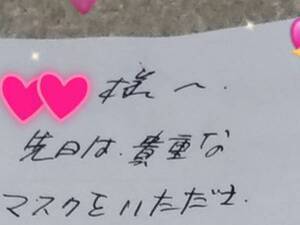 様へ.
先日は.貴重な
マスクをいただき.